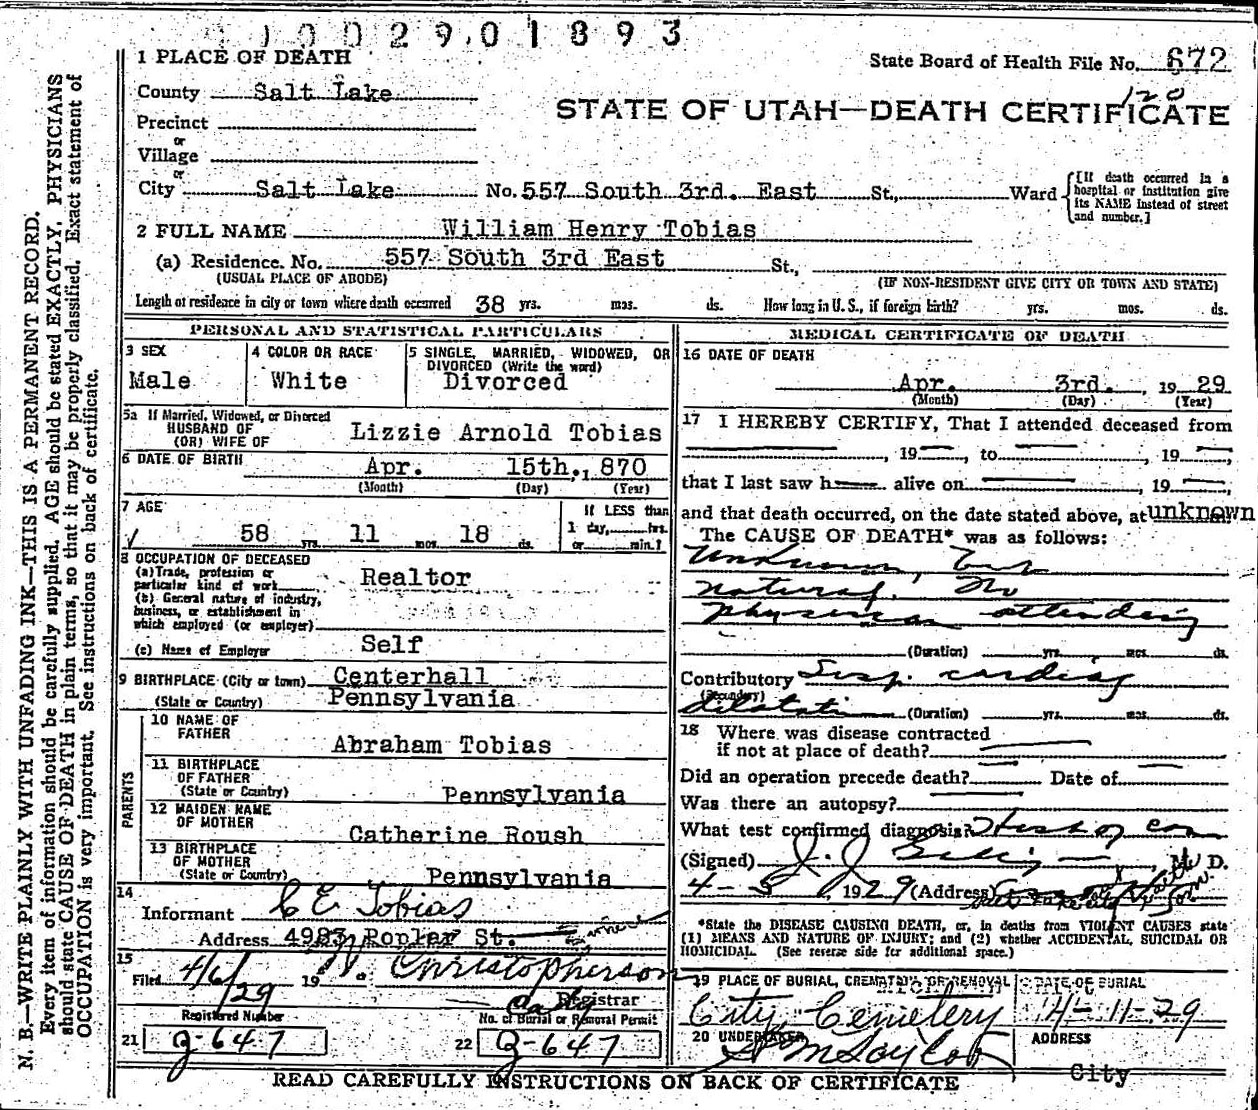 10029.01893
1 PLACE OF DEATH
State Board of Health File No. 672
County Salt Lake
120
STATE OF UTAH—DEATH CERTIFICATE
Precinct
or
Village
or
City Salt Lake No. 557 South 3rd. East St., Ward
[If death occurred in a hospital or institution give its NAME instead of street and number.]
2 FULL NAME William Henry Tobias
(a) Residence. No. 557 South 3rd East St.,
(USUAL PLACE OF ABODE) (IF NON-RESIDENT GIVE CITY OR TOWN AND STATE)
Length of residence in city or town where death occurred 38 yrs. mos. ds. How long in U. S., if foreign birth? yrs. mos. ds.
PERSONAL AND STATISTICAL PARTICULARS
3 SEX
Male
4 COLOR OR RACE
White
5 SINGLE, MARRIED, WIDOWED, OR
DIVORCED (Write the word)
Divorced
5a If Married, Widowed, or Divorced
HUSBAND OF
(OR) WIFE OF Lizzie Arnold Tobias
6 DATE OF BIRTH
Apr. 15th., 870
(Month) (Day) (Year)
7 AGE
58 yrs. 11 mos. 18 ds.
If LESS than
1 day, hrs.
or min.?
8 OCCUPATION OF DECEASED
(a) Trade, profession or
particular kind of work Realtor
(b) General nature of industry,
business, or establishment in
which employed (or employer)
(c) Name of Employer Self
9 BIRTHPLACE (City or town) Centerhall
(State or Country) Pennsylvania
PARENTS
10 NAME OF
FATHER Abraham Tobias
11 BIRTHPLACE
OF FATHER
(State or Country) Pennsylvania
12 MAIDEN NAME
OF MOTHER Catherine Roush
13 BIRTHPLACE
OF MOTHER
(State or Country) Pennsylvania
14
Informant C E Tobias
Address 4983 Poplar St.
15
Filed 4/6/29 19 Christopherson
Registrar
Registered Number
No. of Burial or Removal Permit
21 J-647 22 J-647
MEDICAL CERTIFICATE OF DEATH
16 DATE OF DEATH
Apr. 3rd. 19 29
(Month) (Day) (Year)
17 I HEREBY CERTIFY, That I attended deceased from
, 19 , to , 19 ,
that I last saw h alive on , 19 ,
and that death occurred, on the date stated above, at unknown m.
The CAUSE OF DEATH* was as follows:
Unknown, but
natural. No
physician attending
(Duration) yrs. mos. ds.
Contributory Susp. cardiac
(Secondary)
dilatation (Duration) yrs. mos. ds.
18 Where was disease contracted
if not at place of death?
Did an operation precede death? Date of
Was there an autopsy?
What test confirmed diagnosis? Hist of com
(Signed) J. J. M. D.
4-5 1929 (Address)
*State the DISEASE CAUSING DEATH, or, in deaths from VIOLENT CAUSES state
(1) MEANS AND NATURE OF INJURY; and (2) whether ACCIDENTAL, SUICIDAL OR
HOMICIDAL. (See reverse side for additional space.)
19 PLACE OF BURIAL, CREMATION OR REMOVAL
City Cemetery
DATE OF BURIAL
4-11-29
20 UNDERTAKER
ADDRESS
City
READ CAREFULLY INSTRUCTIONS ON BACK OF CERTIFICATE
N. B.—WRITE PLAINLY WITH UNFADING INK—THIS IS A PERMANENT RECORD.
Every item of information should be carefully supplied. AGE should be stated EXACTLY. PHYSICIANS
should state CAUSE OF DEATH in plain terms, so that it may be properly classified. Exact statement of
OCCUPATION is very important. See instructions on back of certificate.